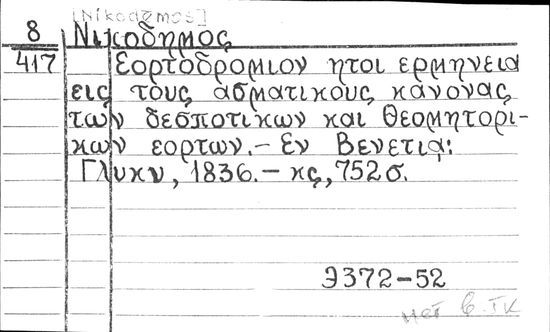 [Nikodemos]
8 Νικοδημος
417 Εορτοδρομιον ητοι ερμηνεια
εις τους ασματικους κανονας
των δεσποτικων και θεομητορι-
κων εορτων.— Εν Βενετιᾳ:
Γλυκυ, 1836.— κς, 752 σ.
Э372-52
нет в ГК